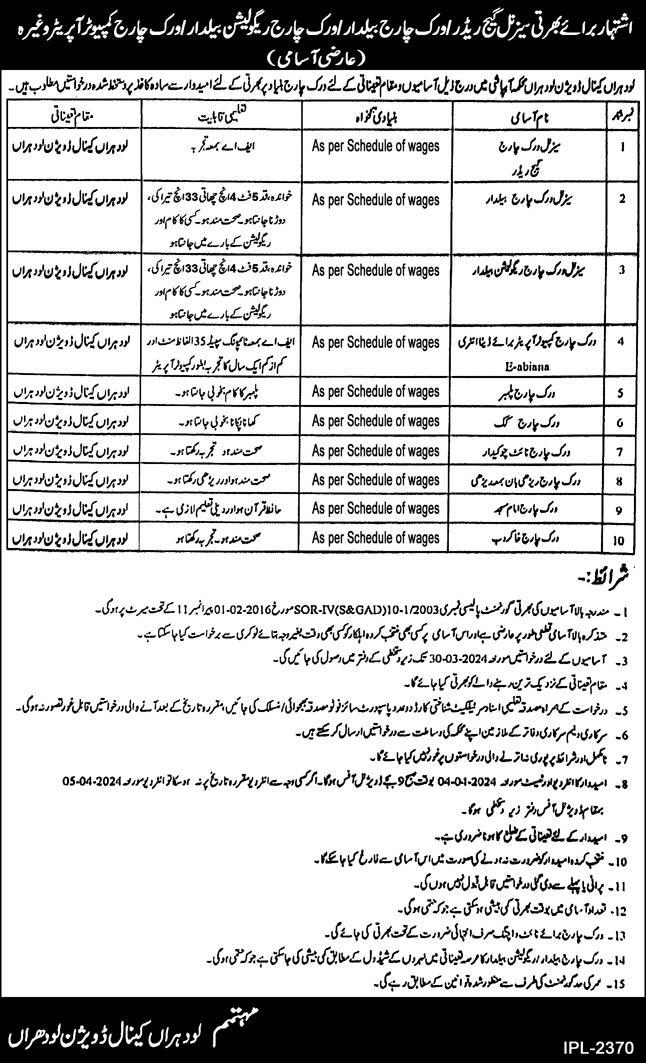 اشتہار برائے بھرتی سیزنل گیج ریڈر/ورک چارج بیلدار/ورک چارج ریگولیشن بیلدار/ورک چارج کمپیوٹر آپریٹر وغیرہ
(عارضی آسامی)
لودہراں کینال ڈویژن لودہراں محکمہ آبپاشی میں درج ذیل آسامیوں و مقام تعیناتی کے لئے ورک چارج بنیاد پر بھرتی کے لئے امیدوار سے سادہ کاغذ پر دستخط شدہ درخواستیں مطلوب ہیں۔
نمبر شمار نام آسامی بنیادی تنخواہ تعلیمی قابلیت مقام تعیناتی
1 سیزنل ورک چارج گیج ریڈر As per Schedule of wages ایف اے بمعہ تجربہ لودہراں کینال ڈویژن لودہراں
2 سیزنل ورک چارج بیلدار As per Schedule of wages خواندہ، قد 5 فٹ 4 انچ چھاتی 33 انچ تیراکی، لودہراں کینال ڈویژن لودہراں
دوڑنا جانتا ہو۔ صحت مند ہو۔ کسی کا کام اور
ریگولیشن کے بارے میں جانتا ہو
3 سیزنل ورک چارج ریگولیشن بیلدار As per Schedule of wages خواندہ، قد 5 فٹ 4 انچ چھاتی 33 انچ تیراکی، لودہراں کینال ڈویژن لودہراں
دوڑنا جانتا ہو۔ صحت مند ہو۔ کسی کا کام اور
ریگولیشن کے بارے میں جانتا ہو
4 ورک چارج کمپیوٹر آپریٹر برائے ڈیٹا انٹری As per Schedule of wages ایف اے بمعہ ٹائپنگ سپیڈ 35 الفاظ منٹ اور لودہراں کینال ڈویژن لودہراں
E-abiana کم از کم ایک سال کا تجربہ بطور کمپیوٹر آپریٹر
5 ورک چارج پلمبر As per Schedule of wages پلمبر کا کام بخوبی جانتا ہو۔ لودہراں کینال ڈویژن لودہراں
6 ورک چارج کک As per Schedule of wages کھانا پکانا بخوبی جانتا ہو۔ لودہراں کینال ڈویژن لودہراں
7 ورک چارج نائٹ چوکیدار As per Schedule of wages صحت مند ہو۔ تجربہ رکھتا ہو۔ لودہراں کینال ڈویژن لودہراں
8 ورک چارج ریڑھی بان بمعہ ریڑھی As per Schedule of wages صحت مند ہو اور ریڑھی رکھتا ہو۔ لودہراں کینال ڈویژن لودہراں
9 ورک چارج امام مسجد As per Schedule of wages حافظ قرآن ہو اور دینی تعلیم لازمی ہے۔ لودہراں کینال ڈویژن لودہراں
10 ورک چارج خاکروب As per Schedule of wages صحت مند ہو۔ تجربہ رکھتا ہو لودہراں کینال ڈویژن لودہراں
شرائط:۔
1۔ مندرجہ بالا آسامیوں کی بھرتی گورنمنٹ پالیسی نمبری SOR-IV(S&GAD)10-1/2003 مورخہ 01-02-2016 پیرا نمبر 11 کے تحت میرٹ پر ہوگی۔
2۔ متذکرہ بالا آسامی قطعی طور پر عارضی ہے اور اس آسامی پر کسی بھی منتخب کردہ اہلکار کو کسی بھی وقت بغیر وجہ بتائے نوکری سے برخواست کیا جا سکتا ہے۔
3۔ آسامیوں کے لئے درخواستیں مورخہ 30-03-2024 تک زیر دستخطی کے دفتر میں وصول کی جائیں گی۔
4۔ مقام تعیناتی کے نزدیک ترین رہنے والے کو بھرتی کیا جائے گا۔
5۔ درخواست کے ہمراہ مصدقہ تعلیمی اسناد سرٹیفکیٹ شناختی کارڈ دو عدد پاسپورٹ سائز فوٹو مصدقہ بھجوائی/منسلک کی جائیں، مقررہ تاریخ کے بعد آنے والی درخواستیں قابل غور تصور نہ ہوگی۔
6۔ سرکاری و نیم سرکاری دفاتر کے ملازمین اپنے محکمہ کی وساطت سے درخواستیں ارسال کر سکتے ہیں۔
7۔ نامکمل اور شرائط پر پوری نہ اترنے والی درخواستوں پر غور نہیں کیا جائے گا۔
8۔ امیدوار کا انٹرویو اور ٹیسٹ مورخہ 04-04-2024 بوقت صبح 9 بجے ڈویژنل آفس ہوگا۔ اگر کسی وجہ سے انٹرویو مقررہ تاریخ پر نہ ہو سکا تو انٹرویو مورخہ 05-04-2024
بمقام ڈویژنل آفس دفتر زیر دستخطی ہوگا۔
9۔ امیدوار کے لئے تعیناتی کے ضلع کا ہونا ضروری ہے۔
10۔ منتخب کردہ امیدوار کو ضرورت نہ ہونے کی صورت میں اس آسامی سے فارغ کیا جا سکے گا۔
11۔ پرانی یا پہلے سے دی گئی درخواستیں قابل قبول نہیں ہوں گی۔
12۔ تعداد آسامی میں بوقت بھرتی کمی بیشی ہو سکتی ہے جو کہ حتمی ہوگی۔
13۔ ورک چارج برائے نائٹ واچنگ صرف انتہائی ضرورت کے تحت بھرتی کی جائے گی۔
14۔ ورک چارج بیلدار/ریگولیشن بیلدار کا عرصہ تعیناتی میں نہروں کے شیڈول کے مطابق کمی بیشی کی جا سکتی ہے جو کہ حتمی ہوگی۔
15۔ عمر کی حد گورنمنٹ کی طرف سے منظور شدہ قوانین کے مطابق رہے گی۔
مہتمم لودہراں کینال ڈویژن لودھراں
IPL-2370